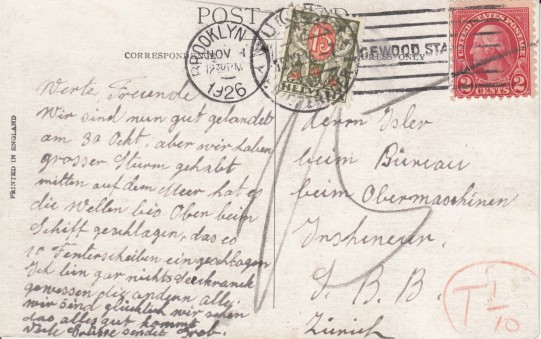 POST
CORRESPONDENCE
ADDRESS ONLY
BROOKLYN
NOV 1
1926
N.Y.
RIDGEWOOD STA
15
HELVETIA
UNITED STATES POSTAGE
2 CENTS 2
PRINTED IN ENGLAND
Werte Freunde
Wir sind nun gut gelandet
am 30 Ockt, aber wir haben
grosser Sturm gehabt
mitten auf dem Meer hat es
die Wellen bis Oben beim
Schiff geschlagen, das es
10 Fenterscheiben eingeschlagen
Ich bin gar nichts Seekrank
gewessen die andern alle.
wir sind glücklich wir sehen
das alles gut kommt
Viele Grüsse sendet
Herrn Isler
beim Büreau
beim Obermaschinen
Inshineur.
S. B. B.
Zürich
T 1/10
15